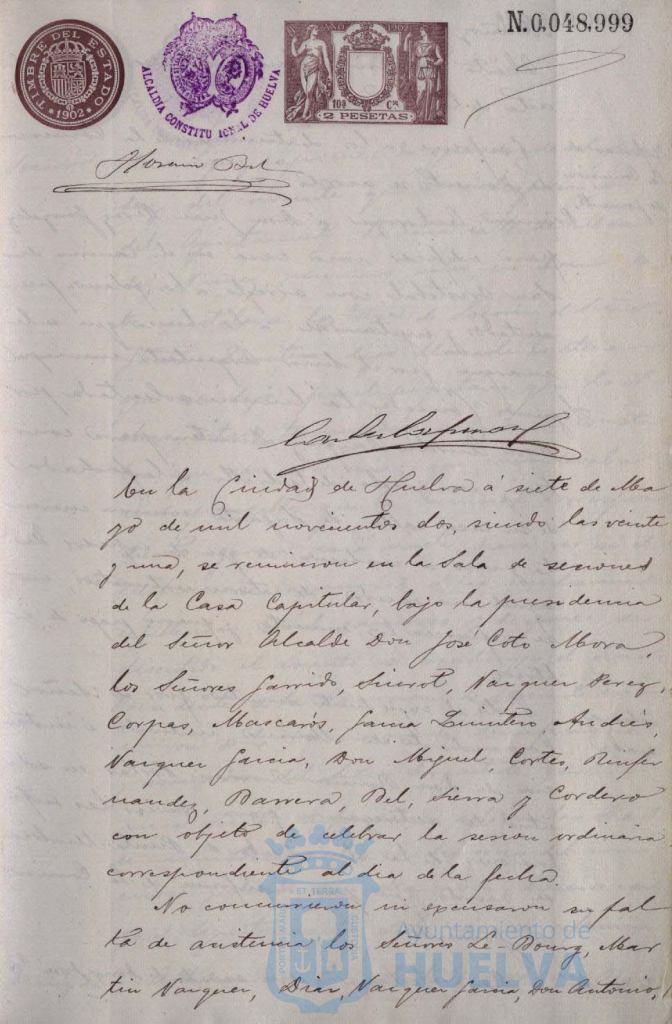 N.0.048.999
TIMBRE DEL ESTADO
1902
ALCALDIA CONSTITUCIONAL DE HUELVA
AÑO 1902
10ª Cª
2 PESETAS
Bel
En la Ciudad de Huelva á siete de Ma
yo de mil novecientos dos, siendo las veinte
y una, se reunieron en la Sala de sesiones
de la Casa Capitular, bajo la presidencia
del Señor Alcalde Don José Coto Mora,
los Señores Garrido, Siurot, Vazquez Perez,
Corpas, Mascarós, Garcia Quintero, Andrés,
Vazquez Garcia, Don Miguel, Cortes, Binfer
nandez, Barrera, Bel, Sierra y Cordero
con objeto de celebrar la sesion ordinaria
correspondiente al dia de la fecha.
No concurrieron ni excusaron su fal
ta de asistencia los Señores Le-Bourg, Mar
tin Vazquez, Diaz, Vazquez Garcia, Don Antonio,
PORTUS MARIS ET TERRÆ CUSTODIA
Ayuntamiento de
HUELVA